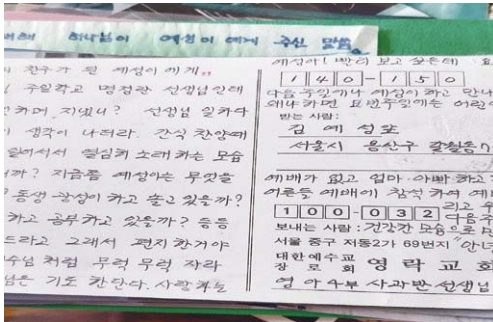 하나님이 예성이에게 주신 말씀
친구가 된 예성이에게,,
주일학교 명정란 선생님인데
하며 지냈니? 선생님 일하다
생각이 나더라. 간식 찬양때
일어서서 열심히 노래하는 모습
까? 지금쯤 예성이는 무엇을
동생 광성이하고 놀고 있을까?
하고 공부하고 있을까? 등등
드라고 그래서 편지한거야
수님처럼 무럭무럭 자라
님은 기도 한단다. 사랑하는
예성아! 빨리 보고싶은데
140-150
다음주일에나 예성이하고 만나
왜냐하면 요번주일에는 어린
받는 사람:
김예성
서울시 용산구 갈월동
예배가 없고 엄마·아빠하고
어른들 예배에 참석하여 예배
리고
100-032
다음주
보내는 사람: 건강한 모습으로 만
서울 중구 저동2가 69번지 "안녕
대한예수교장로회 영락교회
영아4부 사과반 선생님